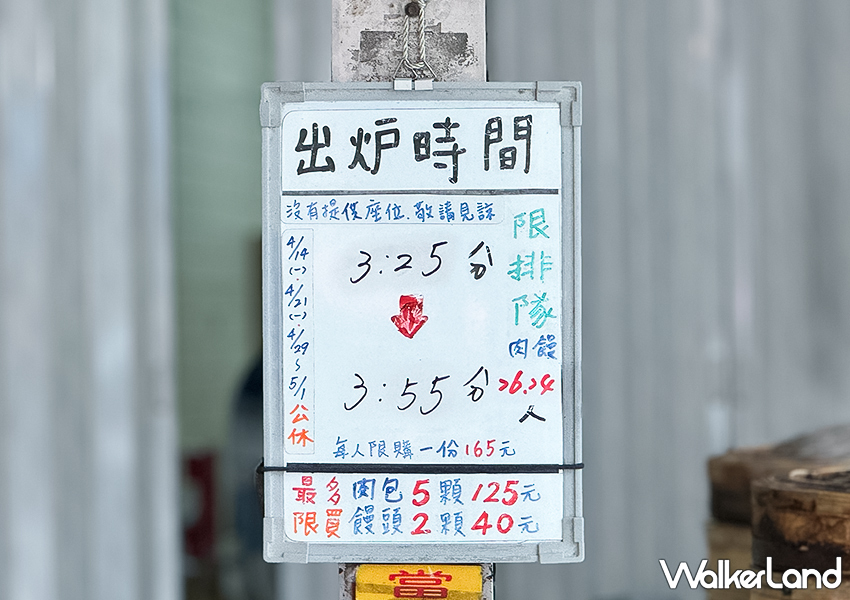 出炉時間
沒有提供座位.敬請見諒
4/14
(一)
4/21
(一)
4/29
5/1
公休
3:25分
3:55分
限排隊
肉饅
26.24
人
每人限購一份165元
最多肉包5顆125元
限買饅頭2顆40元
當
WalkerLand